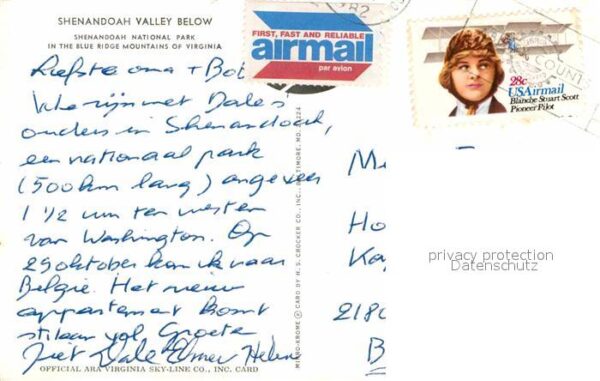 SHENANDOAH VALLEY BELOW
SHENANDOAH NATIONAL PARK
IN THE BLUE RIDGE MOUNTAINS OF VIRGINIA
Liefste oma + Bob
We zijn met Dales'
ouders in Shenandoah,
een nationaal park
(500 km lang) ongeveer
1 1/2 uur ten westen
van Washington. Op
29 oktober kom ik naar
Belgie. Het nieuw
appartement komt
stilaan vol. Groeten
Jiet Dale Elmer Helen
OFFICIAL ARA VIRGINIA SKY-LINE CO., INC. CARD
MIRRO-KROME CARD BY H. S. CROCKER CO., INC., BALTIMORE, MD. 21224
FIRST, FAST AND RELIABLE
airmail
par avion
28c
USAirmail
Blanche Stuart Scott
Pioneer Pilot
COUNT
M
Ho
Ka
218
B
privacy protection
Datenschutz